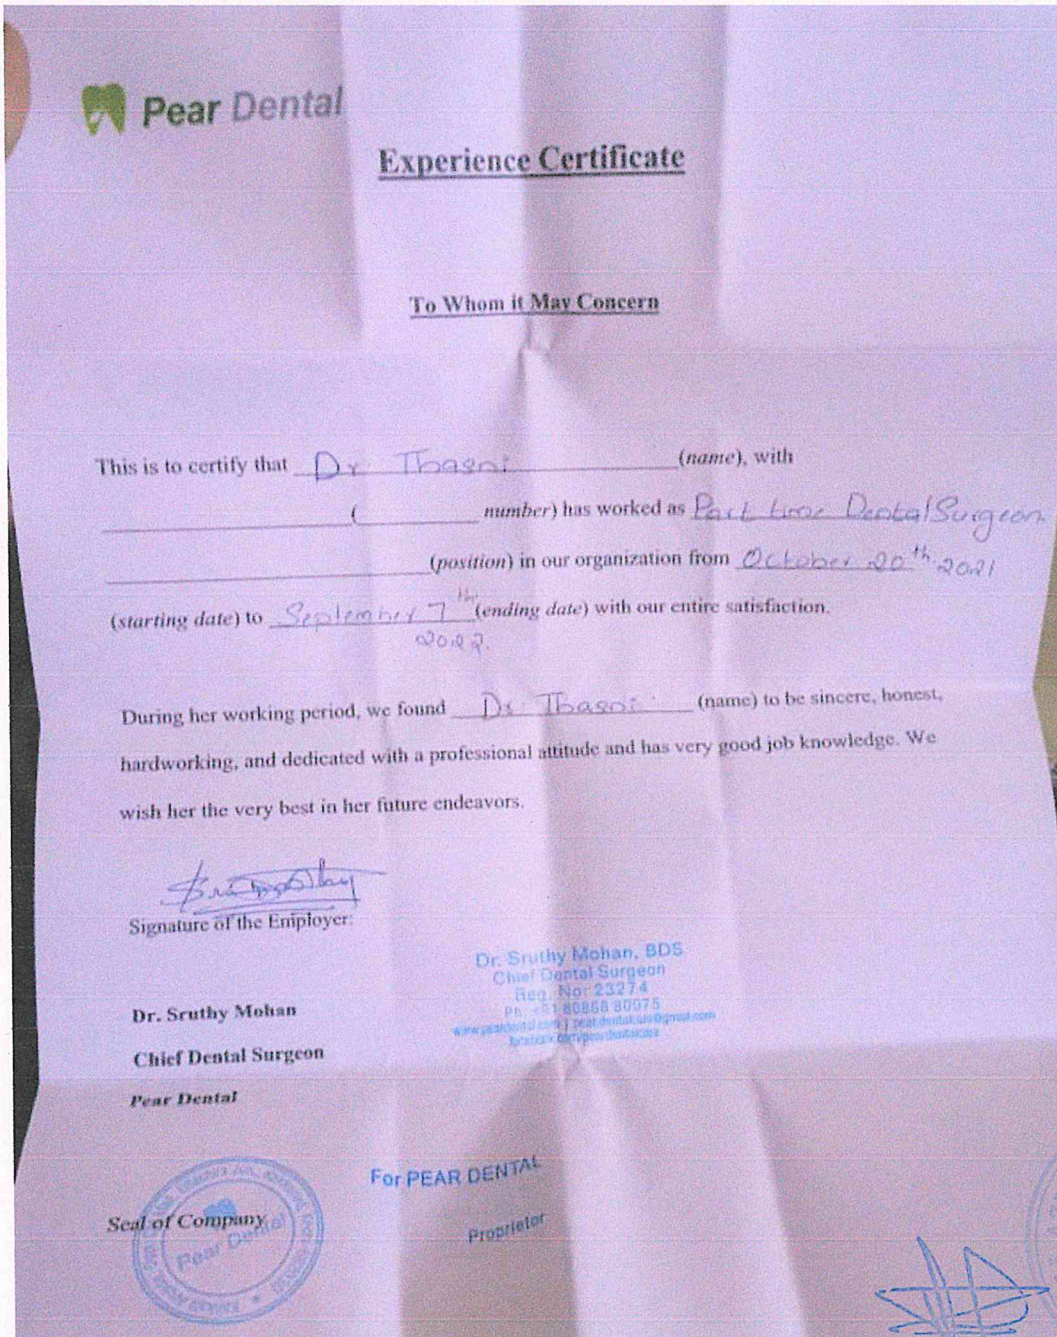 Pear Dental
Experience Certificate
To Whom it May Concern
This is to certify that Dr Thasni (name), with
( number) has worked as Part time Dental Surgeon
(position) in our organization from October 20th 2021
(starting date) to September 7th (ending date) with our entire satisfaction.
2022.
During her working period, we found Dr Thasni (name) to be sincere, honest,
hardworking, and dedicated with a professional attitude and has very good job knowledge. We
wish her the very best in her future endeavors.
Signature of the Employer:
Dr. Sruthy Mohan, BDS
Chief Dental Surgeon
Reg. No: 23274
Ph: +91 80868 80075
Dr. Sruthy Mohan
Chief Dental Surgeon
Pear Dental
For PEAR DENTAL
Proprietor
Seal of Company
Pear Dental